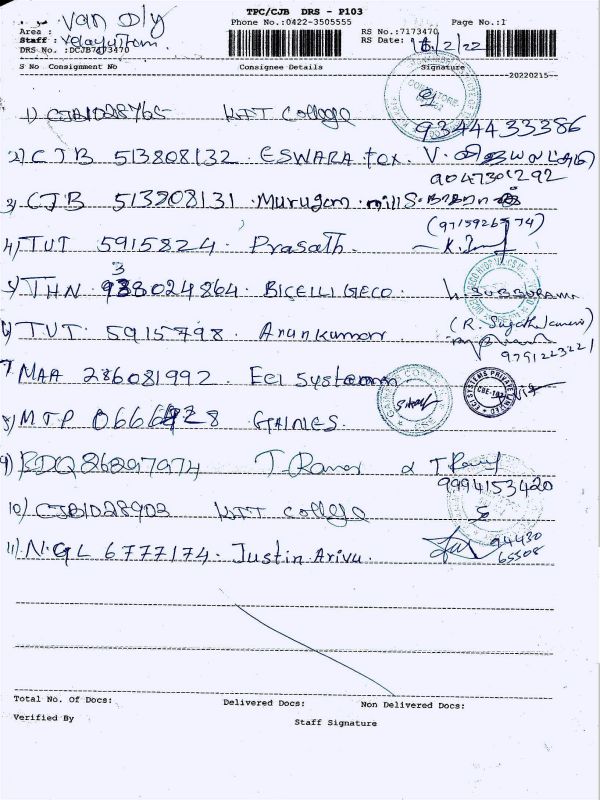 TPC/CJB DRS - P103
Van Dly
Phone No.:0422-3505555 Page No.:1
Area :
Staff : Velayutham RS No.:7173470
DRS No. :DCJB7173470 RS Date: 16/2/22
S No Consignment No Consignee Details Signature
20220215
1) CJB1028765 KIT College
9344433386
2) CJB 513808132. ESWARA tex. V.
9047301292
3) CJB 513808131. Murugan mills.
(9715926774)
4) TUT 5915824. Prasath.
3
5) THN 938024864. BICELLIGECO.
6) TUT. 5915798. Arunkumar.
9791223221
7 MAA 286081992. Eci System
8) MTP 0666 28 GAINES.
9) BDQ86897974 T. Raman
9994153420
10) CJB1028903 KIT College
11) NGL 6777174. Justin Arivu.
94430
65508
Total No. Of Docs: Delivered Docs: Non Delivered Docs:
Verified By Staff Signature